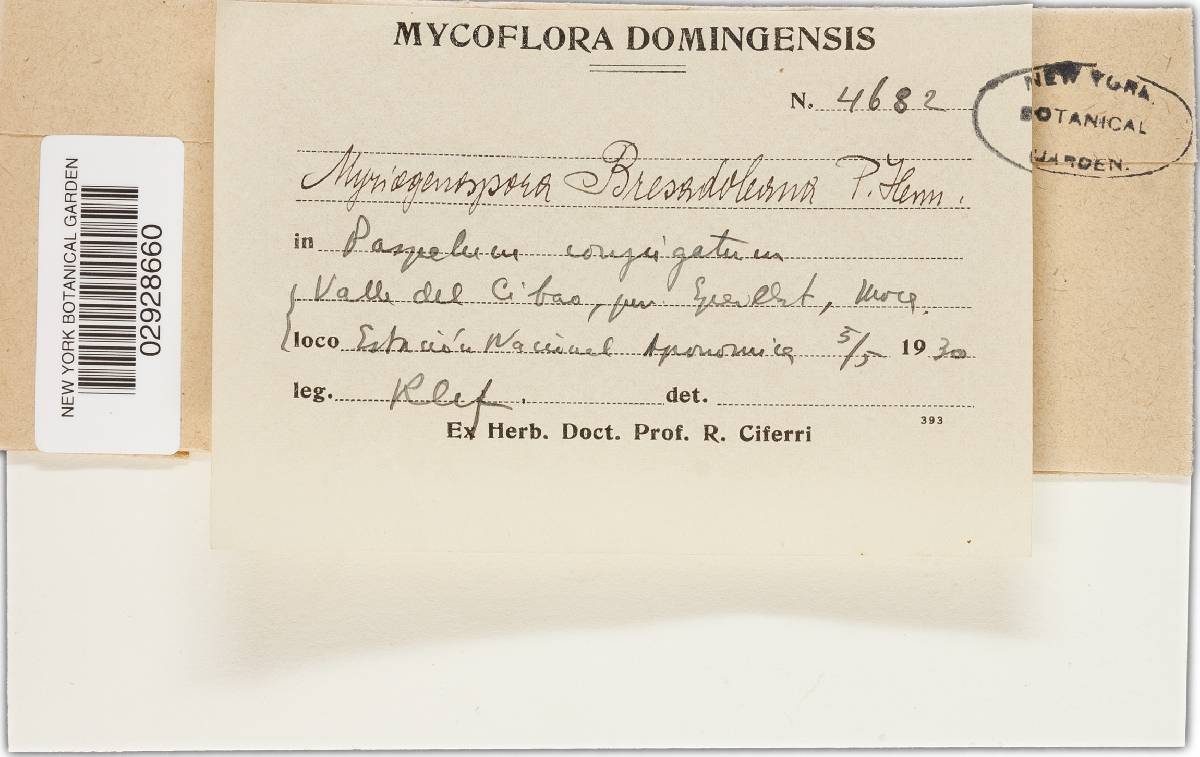 MYCOFLORA DOMINGENSIS
N. 4682
NEW YORK
BOTANICAL
GARDEN.
Myriogenospora Bresadoleana P. Henn.
in Paspalum conjugatum
Valle del Cibao, Moca,
loco Estación Nacional Agronomica 5/5 1930
leg. det.
Ex Herb. Doct. Prof. R. Ciferri
393
NEW YORK BOTANICAL GARDEN
02928660